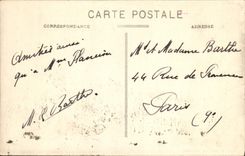 CARTE POSTALE
CORRESPONDANCE
ADRESSE
Amitiés ainsi
qu'à Mme
M. Barthe
Mr & Madame Barthe
44 Rue de
Paris
(9e)